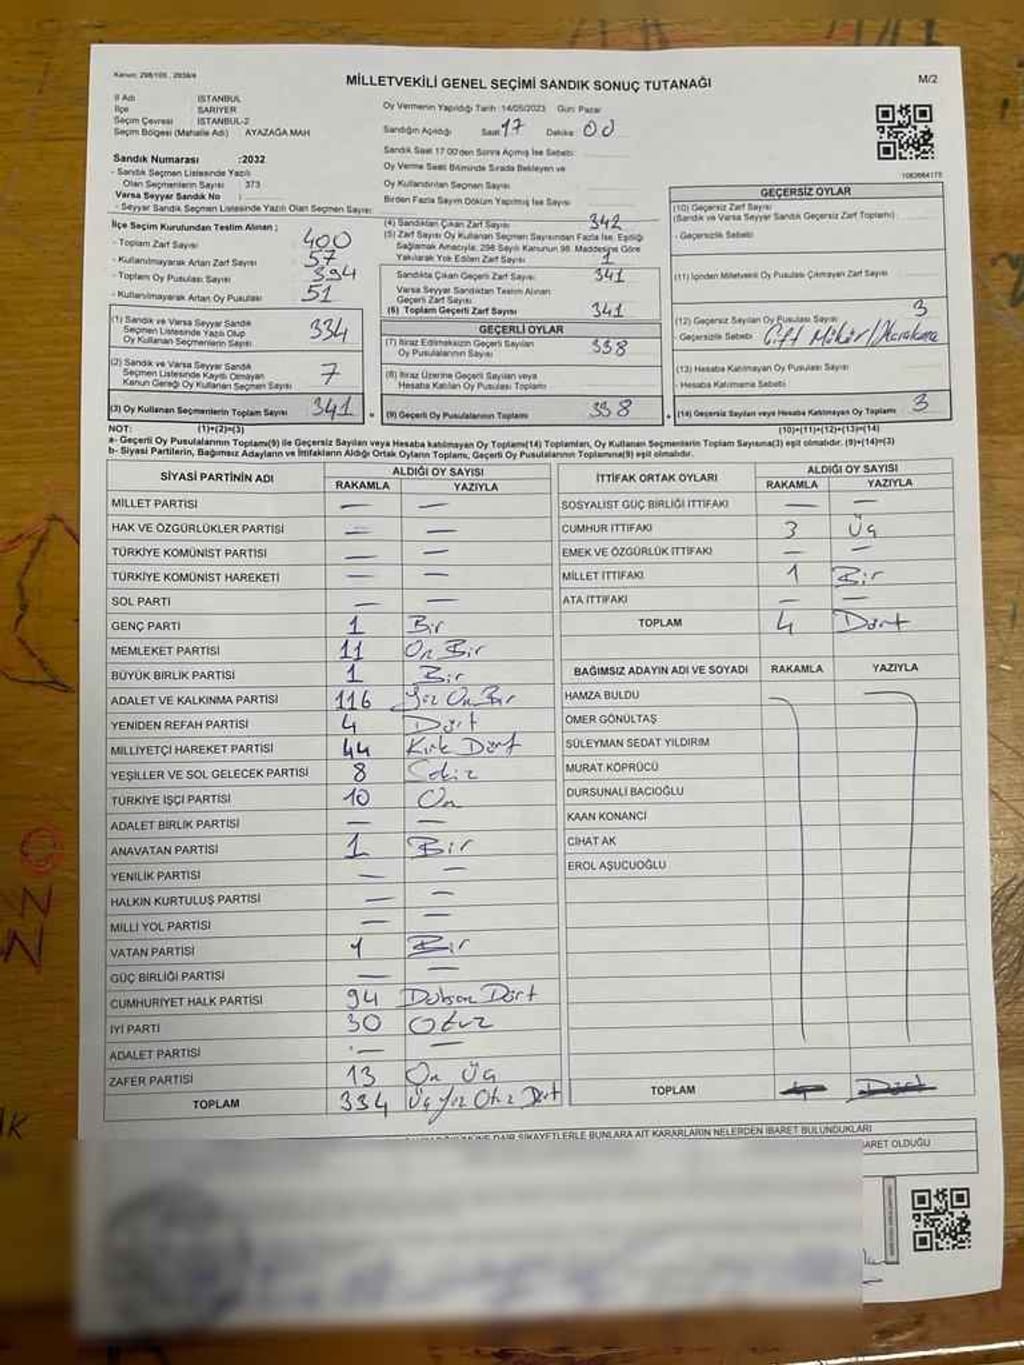 Kanun: 298/105 , 2839/4
MİLLETVEKİLİ GENEL SEÇİMİ SANDIK SONUÇ TUTANAĞI
M/2
İl Adı İSTANBUL
İlçe SARIYER
Seçim Çevresi İSTANBUL-2
Seçim Bölgesi (Mahalle Adı) AYAZAĞA MAH
Oy Vermenin Yapıldığı Tarih :14/05/2023 Gün: Pazar
Sandığın Açıldığı Saat 17 Dakika 00
Sandık Saat 17.00'den Sonra Açılmış İse Sebebi:
Oy Verme Saati Bitiminde Sırada Bekleyen ve
Oy Kullandırılan Seçmen Sayısı
Birden Fazla Sayım Döküm Yapılmış İse Sayısı
Sandık Numarası :2032
- Sandık Seçmen Listesinde Yazılı
Olan Seçmenlerin Sayısı : 373
Varsa Seyyar Sandık No :
- Seyyar Sandık Seçmen Listesinde Yazılı Olan Seçmen Sayısı:
İlçe Seçim Kurulundan Teslim Alınan ;
- Toplam Zarf Sayısı 400
- Kullanılmayarak Artan Zarf Sayısı 57
- Toplam Oy Pusulası Sayısı 394
- Kullanılmayarak Artan Oy Pusulası 51
(1) Sandık ve Varsa Seyyar Sandık
Seçmen Listesinde Yazılı Olup
Oy Kullanan Seçmenlerin Sayısı 334
(2) Sandık ve Varsa Seyyar Sandık
Seçmen Listesinde Kayıtlı Olmayan
Kanun Gereği Oy Kullanan Seçmen Sayısı 7
(3) Oy Kullanan Seçmenlerin Toplam Sayısı 341
(4) Sandıktan Çıkan Zarf Sayısı 342
(5) Zarf Sayısı Oy Kullanan Seçmen Sayısından Fazla İse, Eşitliği
Sağlamak Amacıyla, 298 Sayılı Kanunun 98. Maddesine Göre
Yakılarak Yok Edilen Zarf Sayısı 1
Sandıkta Çıkan Geçerli Zarf Sayısı 341
Varsa Seyyar Sandıktan Teslim Alınan
Geçerli Zarf Sayısı
(6) Toplam Geçerli Zarf Sayısı 341
GEÇERLİ OYLAR
(7) İtiraz Edilmeksizin Geçerli Sayılan
Oy Pusulalarının Sayısı 338
(8) İtiraz Üzerine Geçerli Sayılan veya
Hesaba Katılan Oy Pusulası Toplamı
= (9) Geçerli Oy Pusulalarının Toplamı 338
1063664175
GEÇERSİZ OYLAR
(10) Geçersiz Zarf Sayısı
(Sandık ve Varsa Seyyar Sandık Geçersiz Zarf Toplamı)
- Geçersizlik Sebebi
(11) İçinden Milletvekili Oy Pusulası Çıkmayan Zarf Sayısı
(12) Geçersiz Sayılan Oy Pusulası Sayısı 3
- Geçersizlik Sebebi Çift Mühür/Karalama
(13) Hesaba Katılmayan Oy Pusulası Sayısı
- Hesaba Katılmama Sebebi
+ (14) Geçersiz Sayılan veya Hesaba Katılmayan Oy Toplamı 3
NOT: (1)+(2)=(3) (10)+(11)+(12)+(13)=(14)
a- Geçerli Oy Pusulalarının Toplamı(9) ile Geçersiz Sayılan veya Hesaba katılmayan Oy Toplamı(14) Toplamları, Oy Kullanan Seçmenlerin Toplam Sayısına(3) eşit olmalıdır. (9)+(14)=(3)
b- Siyasi Partilerin, Bağımsız Adayların ve İttifakların Aldığı Oyların Toplamı, Geçerli Oy Pusulalarının Toplamına(9) eşit olmalıdır.
SİYASİ PARTİNİN ADI ALDIĞI OY SAYISI
RAKAMLA YAZIYLA
MİLLET PARTİSİ — —
HAK VE ÖZGÜRLÜKLER PARTİSİ — —
TÜRKİYE KOMÜNİST PARTİSİ — —
TÜRKİYE KOMÜNİST HAREKETİ — —
SOL PARTİ — —
GENÇ PARTİ 1 Bir
MEMLEKET PARTİSİ 11 On Bir
BÜYÜK BİRLİK PARTİSİ 1 Bir
ADALET VE KALKINMA PARTİSİ 116 Yüz On Bir
YENİDEN REFAH PARTİSİ 4 Dört
MİLLİYETÇİ HAREKET PARTİSİ 44 Kırk Dört
YEŞİLLER VE SOL GELECEK PARTİSİ 8 Sekiz
TÜRKİYE İŞÇİ PARTİSİ 10 On
ADALET BİRLİK PARTİSİ — —
ANAVATAN PARTİSİ 1 Bir
YENİLİK PARTİSİ — —
HALKIN KURTULUŞ PARTİSİ — —
MİLLİ YOL PARTİSİ — —
VATAN PARTİSİ 1 Bir
GÜÇ BİRLİĞİ PARTİSİ — —
CUMHURİYET HALK PARTİSİ 94 Doksan Dört
İYİ PARTİ 30 Otuz
ADALET PARTİSİ — —
ZAFER PARTİSİ 13 On Üç
TOPLAM 334 Üç Yüz Otuz Dört
İTTİFAK ORTAK OYLARI ALDIĞI OY SAYISI
RAKAMLA YAZIYLA
SOSYALİST GÜÇ BİRLİĞİ İTTİFAKI — —
CUMHUR İTTİFAKI 3 Üç
EMEK VE ÖZGÜRLÜK İTTİFAKI — —
MİLLET İTTİFAKI 1 Bir
ATA İTTİFAKI — —
TOPLAM 4 Dört
BAĞIMSIZ ADAYIN ADI VE SOYADI RAKAMLA YAZIYLA
HAMZA BULDU
ÖMER GÖNÜLTAŞ
SÜLEYMAN SEDAT YILDIRIM
MURAT KÖPRÜCÜ
DURSUNALİ BACIOĞLU
KAAN KONANCİ
CİHAT AK
EROL AŞUCUOĞLU
TOPLAM 4 Dört
DAİR ŞİKAYETLERLE BUNLARA AİT KARARLARIN NELERDEN İBARET BULUNDUKLARI
İBARET OLDUĞU